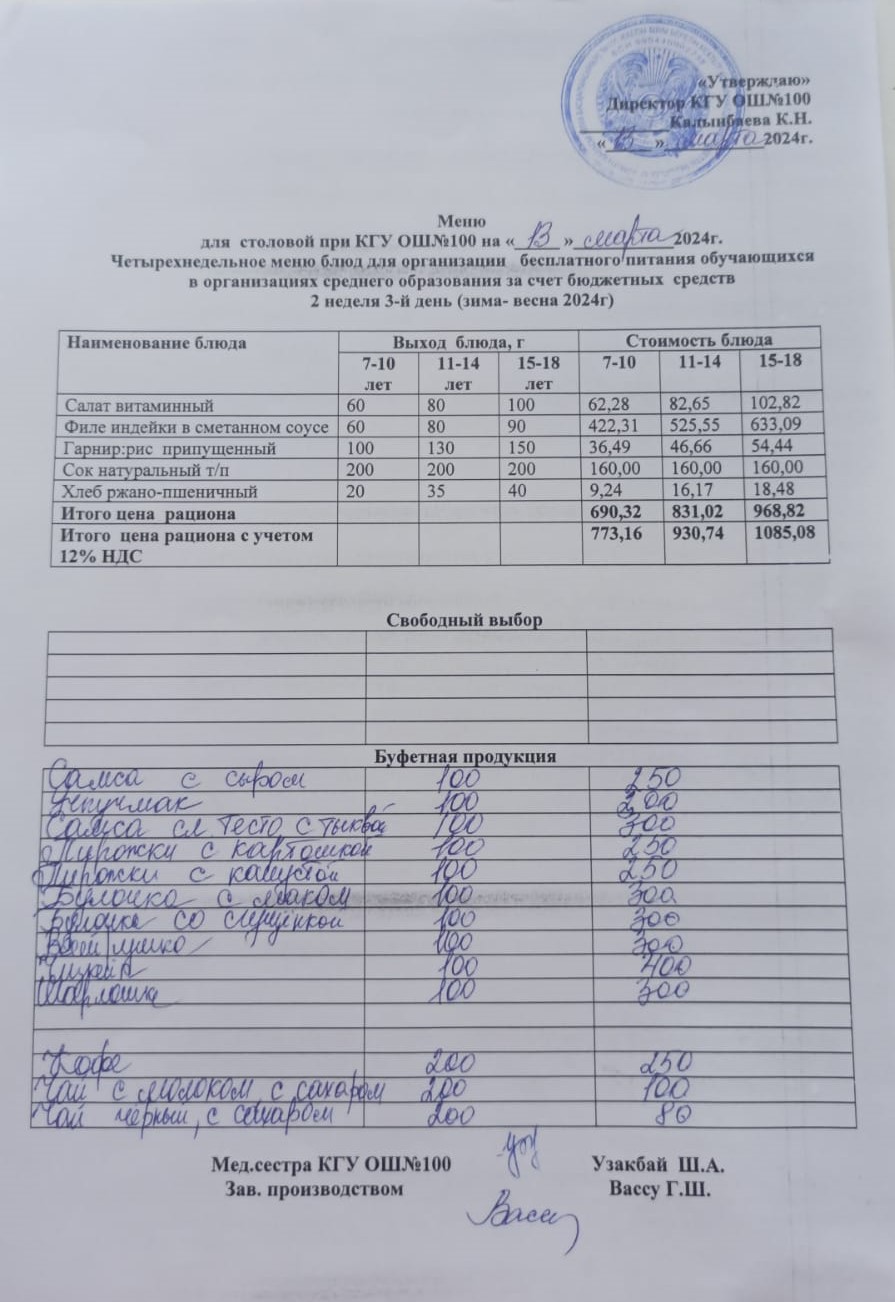 «Утверждаю»
Директор КГУ ОШ№100
Калынбаева К.Н.
« 13 » марта 2024г.
Меню
для столовой при КГУ ОШ№100 на « 13 » марта 2024г.
Четырехнедельное меню блюд для организации бесплатного питания обучающихся
в организациях среднего образования за счет бюджетных средств
2 неделя 3-й день (зима- весна 2024г)
Наименование блюда Выход блюда, г Стоимость блюда
7-10 лет 11-14 лет 15-18 лет 7-10 11-14 15-18
Салат витаминный 60 80 100 62,28 82,65 102,82
Филе индейки в сметанном соусе 60 80 90 422,31 525,55 633,09
Гарнир:рис припущенный 100 130 150 36,49 46,66 54,44
Сок натуральный т/п 200 200 200 160,00 160,00 160,00
Хлеб ржано-пшеничный 20 35 40 9,24 16,17 18,48
Итого цена рациона 690,32 831,02 968,82
Итого цена рациона с учетом 773,16 930,74 1085,08
12% НДС
Свободный выбор
Буфетная продукция
Самса с сыром 100 250
Эчпучмак 100 200
Самса сл тесто с тыквой 100 300
Пирожки с картошкой 100 250
Пирожки с капустой 100 250
Булочка с маком 100 300
Булочка со сгущенкой 100 300
100 300
100 400
Шарлотка 100 300
Кофе 200 250
Чай с молоком, с сахаром 200 100
Чай черный, с сахаром 200 80
Мед.сестра КГУ ОШ№100 Узакбай Ш.А.
Зав. производством Вассу Г.Ш.
Вассу